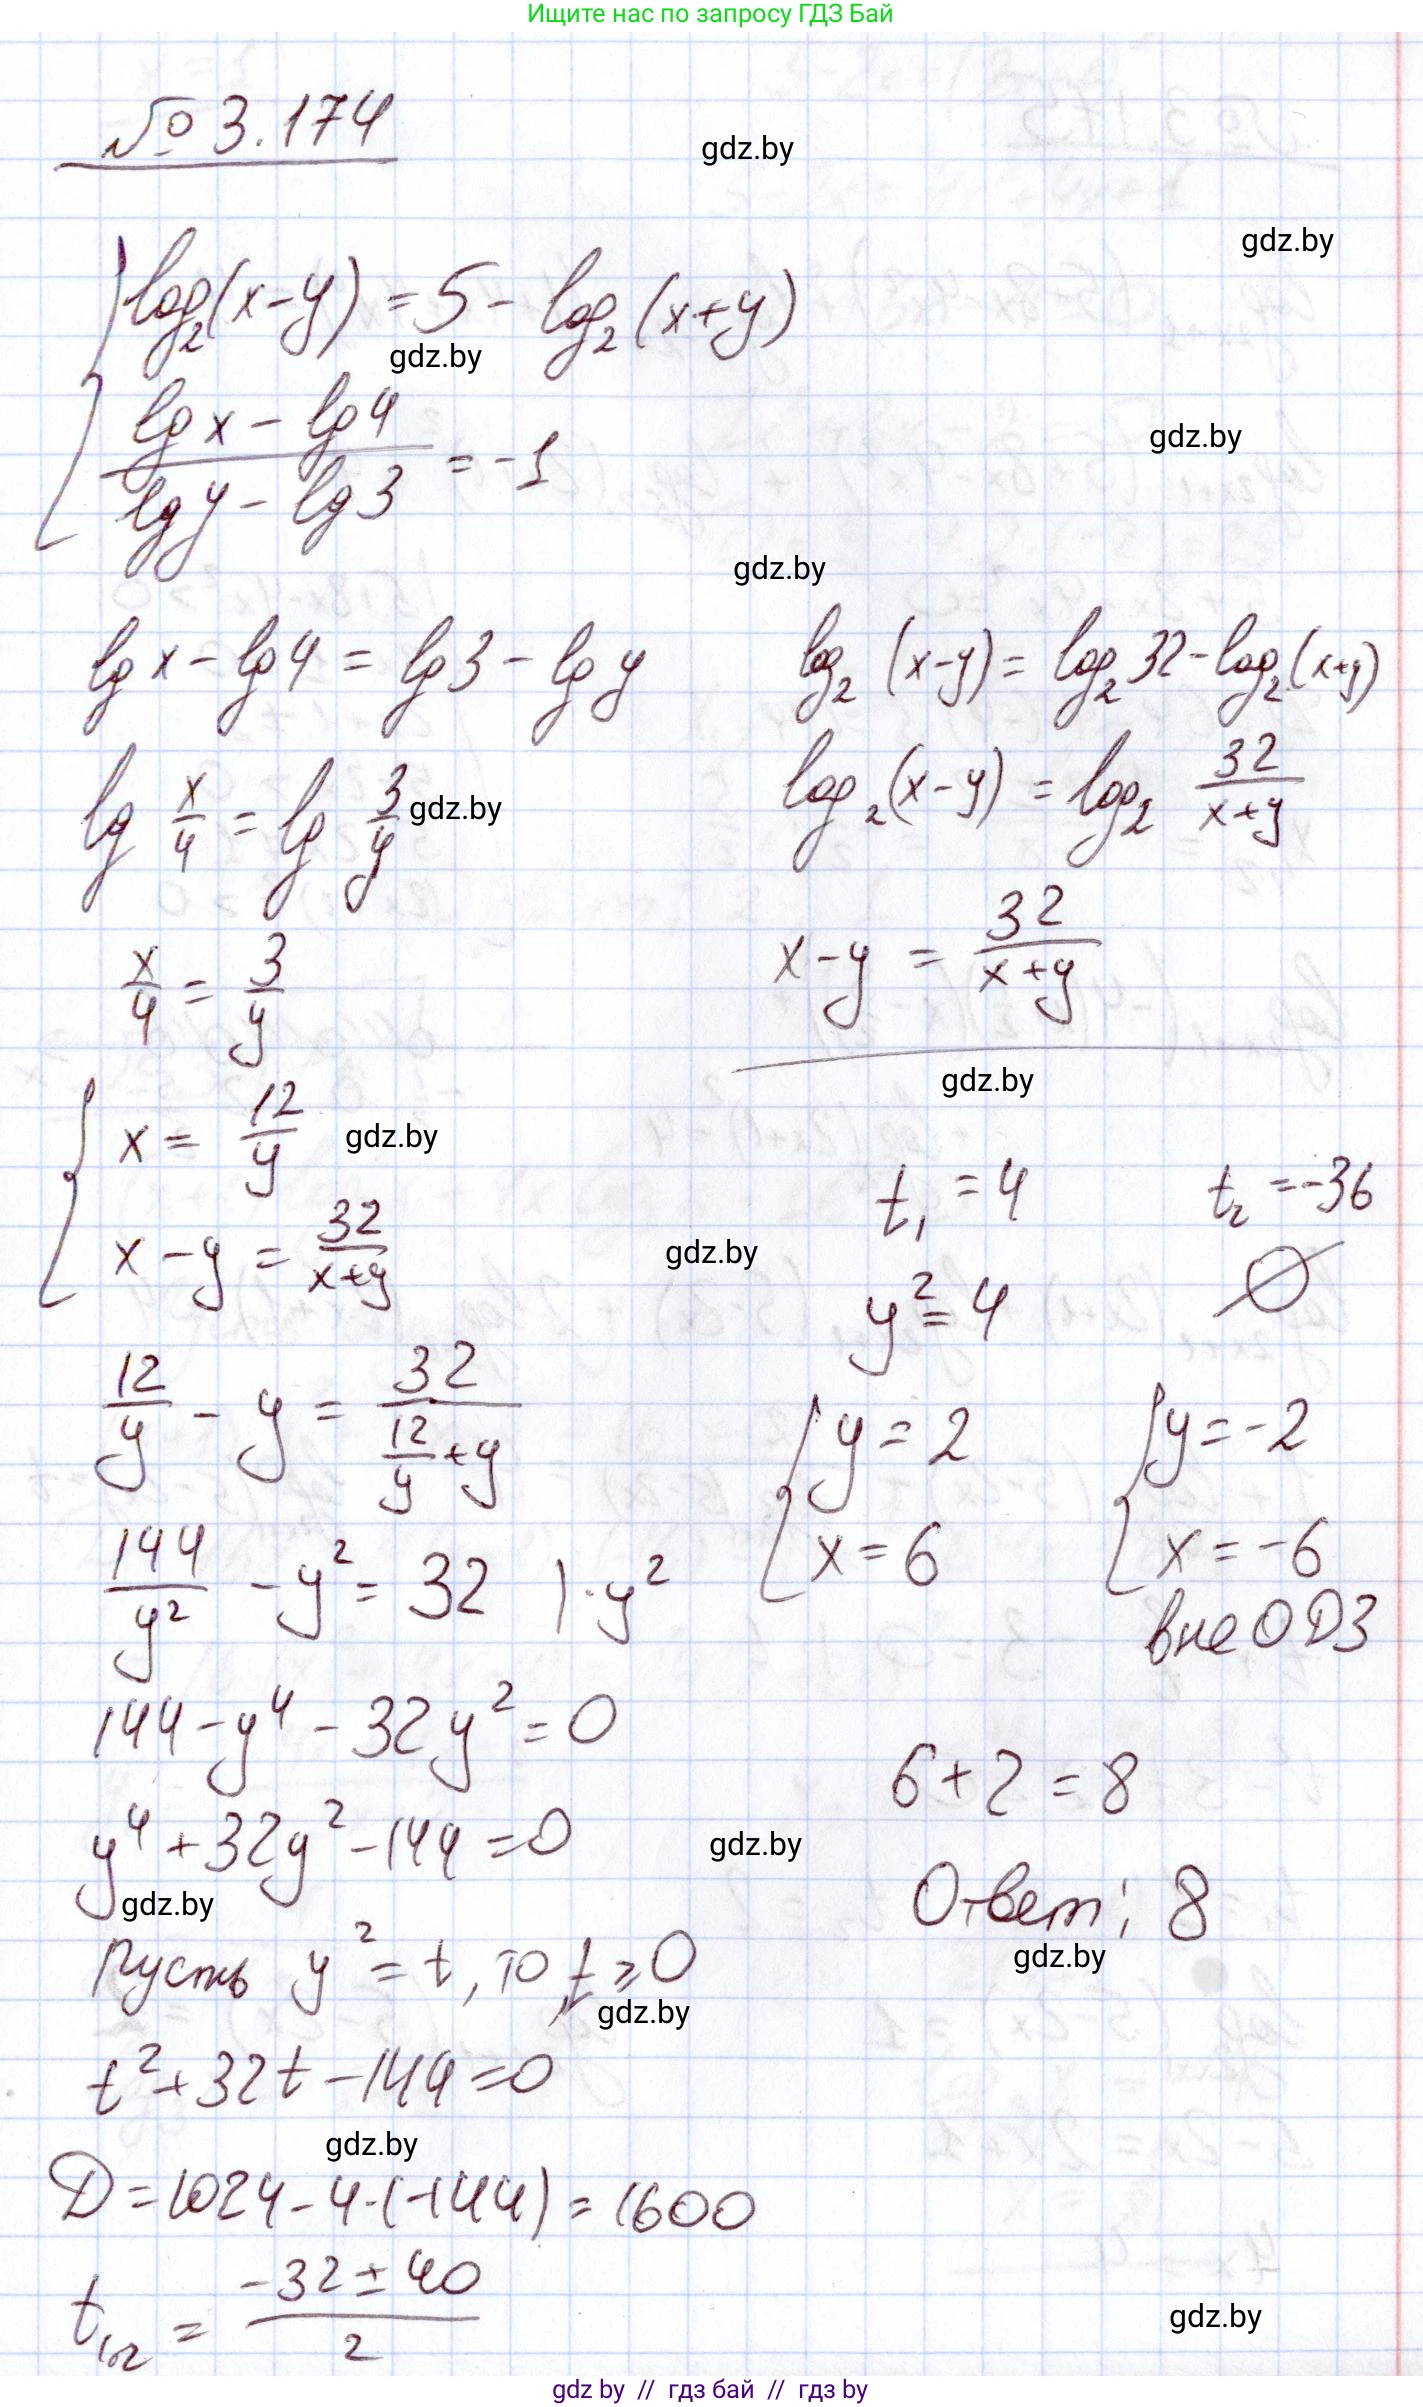 Ищите нас по запросу ГДЗ Бай
№ 3.174
gdz.by
gdz.by
log₂(x-y) = 5 - log₂(x+y)
gdz.by
(lg x - lg 4)/(lg y - lg 3) = -1
gdz.by
gdz.by
lg x - lg 4 = lg 3 - lg y
lg x/4 = lg 3/y
gdz.by
x/4 = 3/y
log₂(x-y) = log₂32 - log₂(x+y)
log₂(x-y) = log₂ 32/(x+y)
x-y = 32/(x+y)
gdz.by
{ x = 12/y
gdz.by
x - y = 32/(x+y)
gdz.by
12/y - y = 32/(12/y + y)
144/y² - y² = 32 | · y²
144 - y⁴ - 32y² = 0
y⁴ + 32y² - 144 = 0
gdz.by
Пусть y² = t, то t ≥ 0
gdz.by
t² + 32t - 144 = 0
gdz.by
D = 1024 - 4·(-144) = 1600
t₁,₂ = (-32 ± 40)/2
t₁ = 4 t₂ = -36
y² = 4 ∅
{ y = 2 { y = -2
x = 6 x = -6
вне ОДЗ
6 + 2 = 8
gdz.by
Ответ: 8
gdz.by
gdz.by
gdz by // гдз бай // гдз by